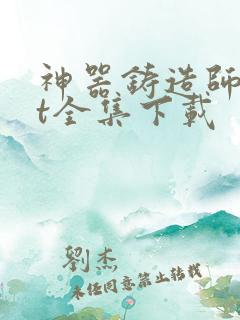 神器鑄造師
t全集下載
劉杰
未經同意禁止轉載